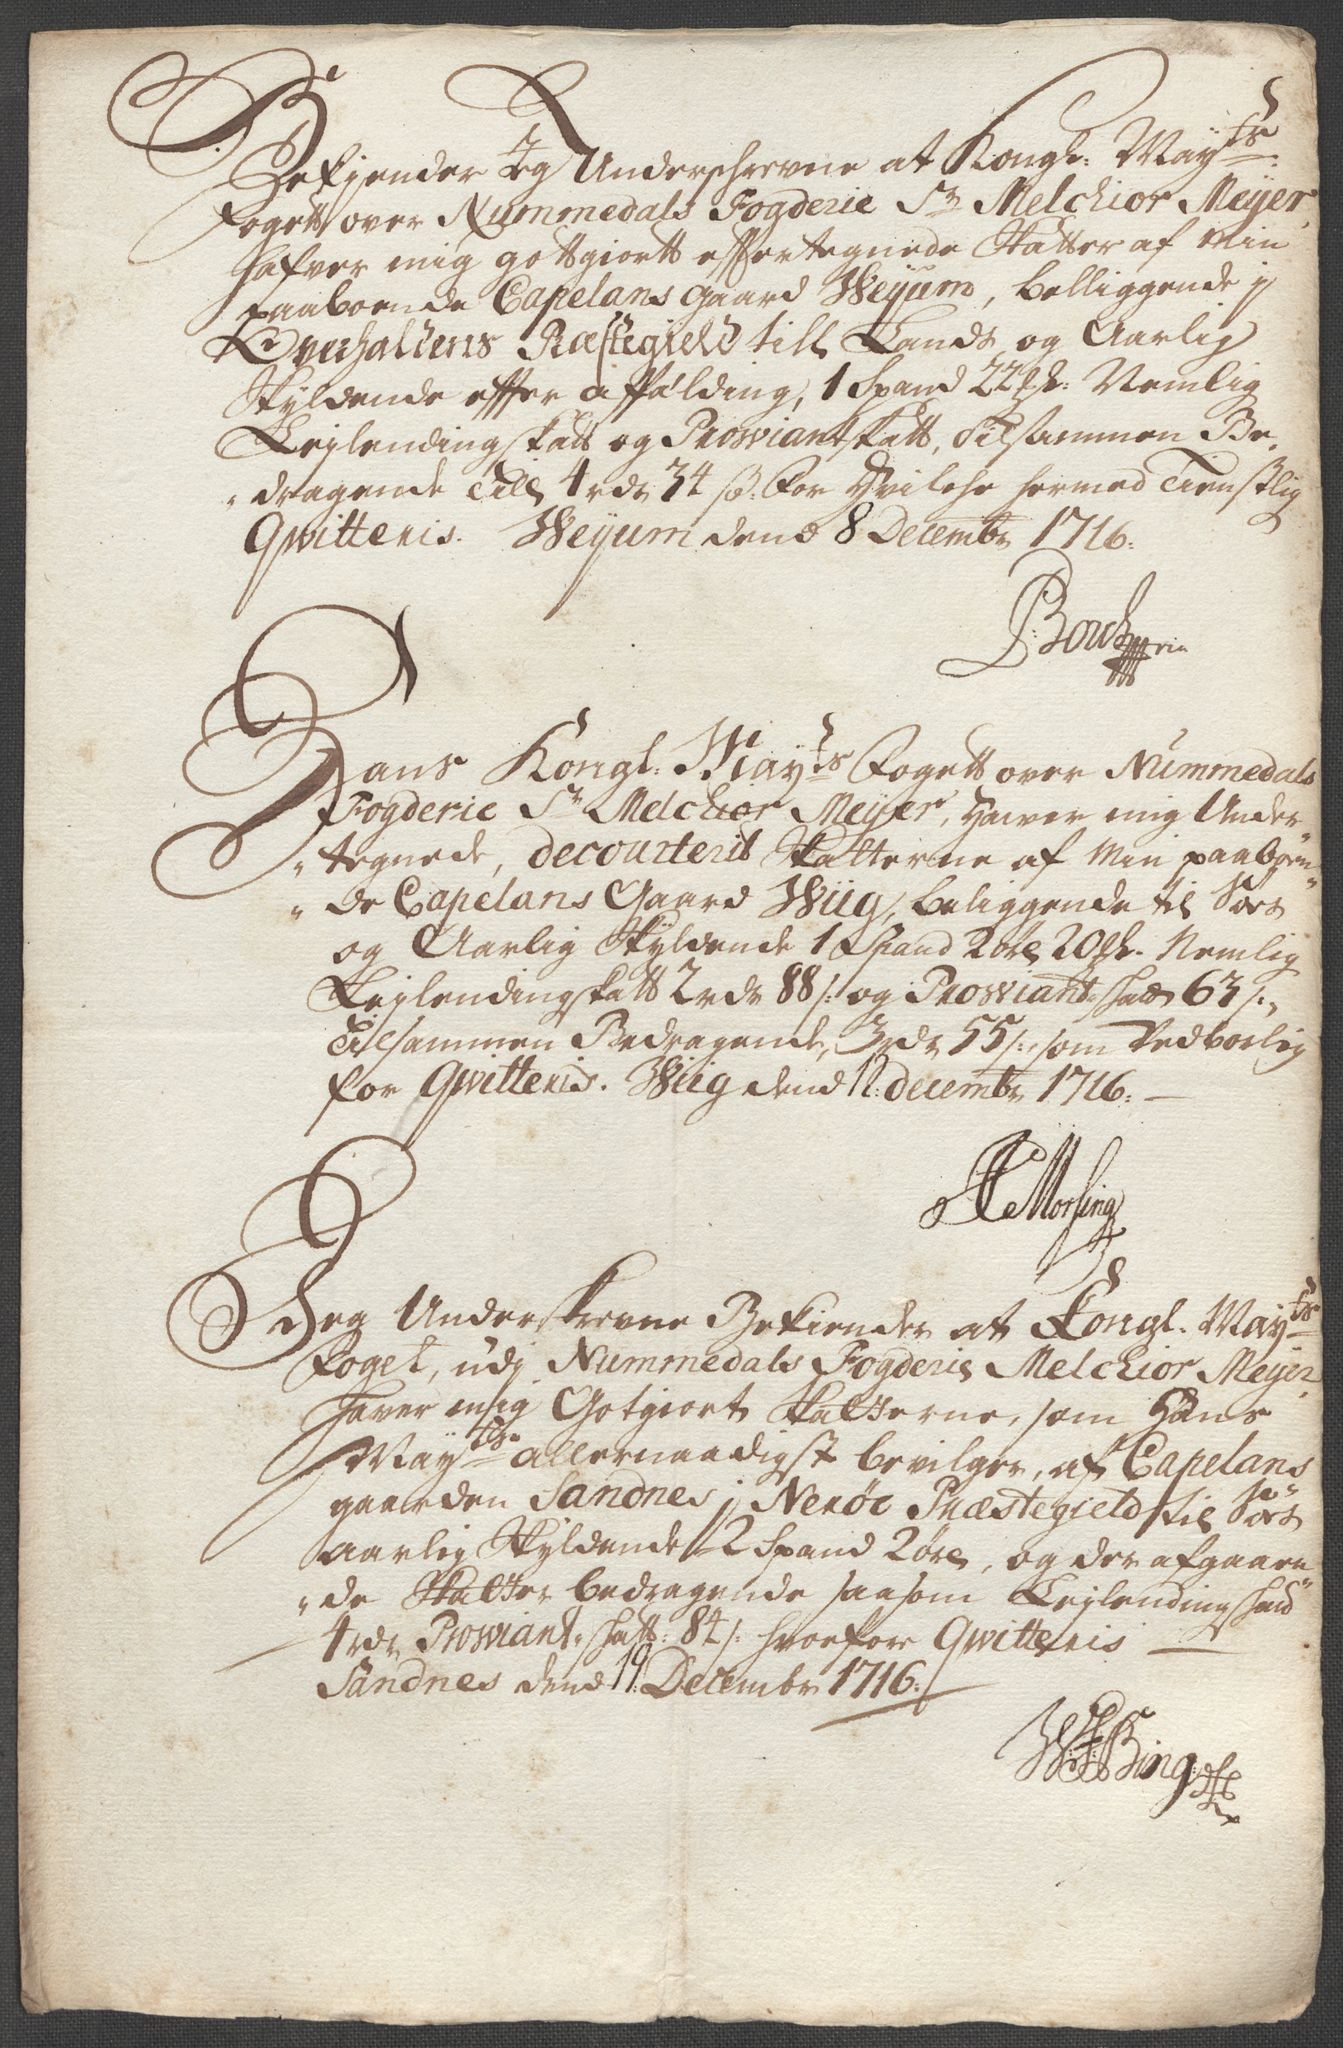 Bekiender Jeg Underschrevne at Kongl: Mayts:
Fogett over Nummedals Fogderie Sr Melchior Meyer,
hafver mig gottgiortt effertegnede Skatter af Min
paaboende Capelans gaard Weyum, belliggende j
Overhaldens Præstegield till Lands og Aarlig
skyldende effter affælding, 1 Spand 22 Mk: Nemlig
Leylendingskatt og Prowiantskatt, tilsammen Be-
dragende Till 4 rdr 34 s: For Hvilche hermed Tienstlig
Qwitteris. Weyum dend 8 Decembr 1716.
P: Borch
Hans Kongl: Mayts Fogett over Nummedals
Fogderie Sr Melchior Meyer, Hawer mig Under-
tegnede, decourterit Skatterne af Min paaboen-
de Capelans Gaard Wiig, beliggende til Søes
og Aarlig Skyldende 1 Spand 2 øre 20 Mk. Nemlig
Leylendingskatt 2 rdr 88 s: og Prowiant skatt 63 s:,
Tilsammen Bedragende, 3 rdr 55 s:, som Vedborlig
for Qwitteris. Wiig dend 12: decembr 1716. –
Morsing
Jeg Underskrevne Bekiender at Kongl. Mayts
Foget, udj Nummedals Fogderie Melchior Meyer
haver mig Gotgiort Skatterne, som Hans
Mayts allernaadigst bevilger, af Capelans
gaarden Sandnes j Nerøe Præstegield til Søes
aarlig Skyldende 2 Spand 2 øre, og der afgaaen-
de Skatter bedragende saasom Leylendingskatt
4 rdr Prowiant, skatt: 84 s: hvorfore Qwitteris
Sandnes dend 19: Decembr 1716:
Bing